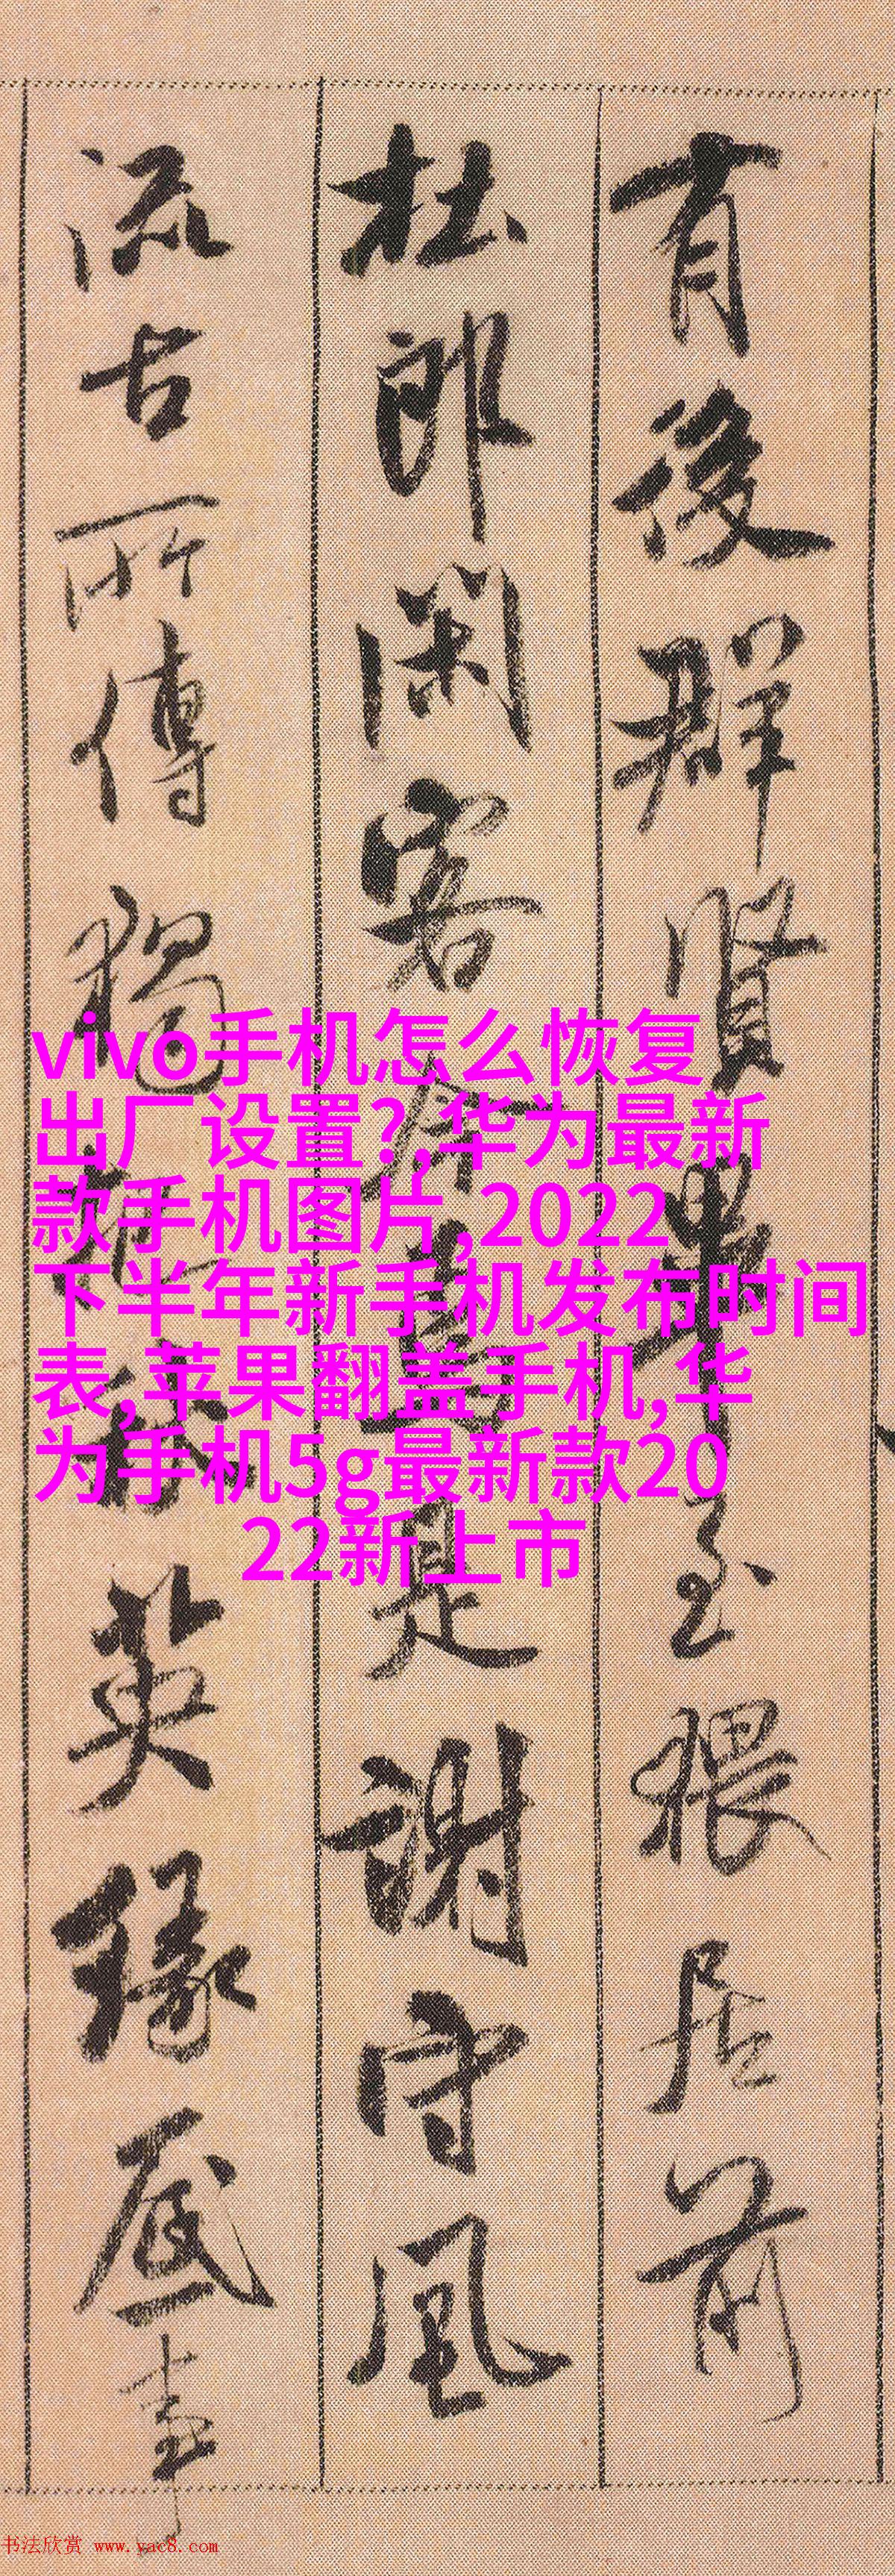 有後群賢畢至猥居前
杜郎閑客今焉是謝守風
流古所傳獨把秋英緣底事
vivo手机怎么恢复
出厂设置?,华为最新
款手机图片,2022
下半年新手机发布时间
表,苹果翻盖手机,华
为手机5g最新款20
22新上市
书法欣赏 www.yac8.com